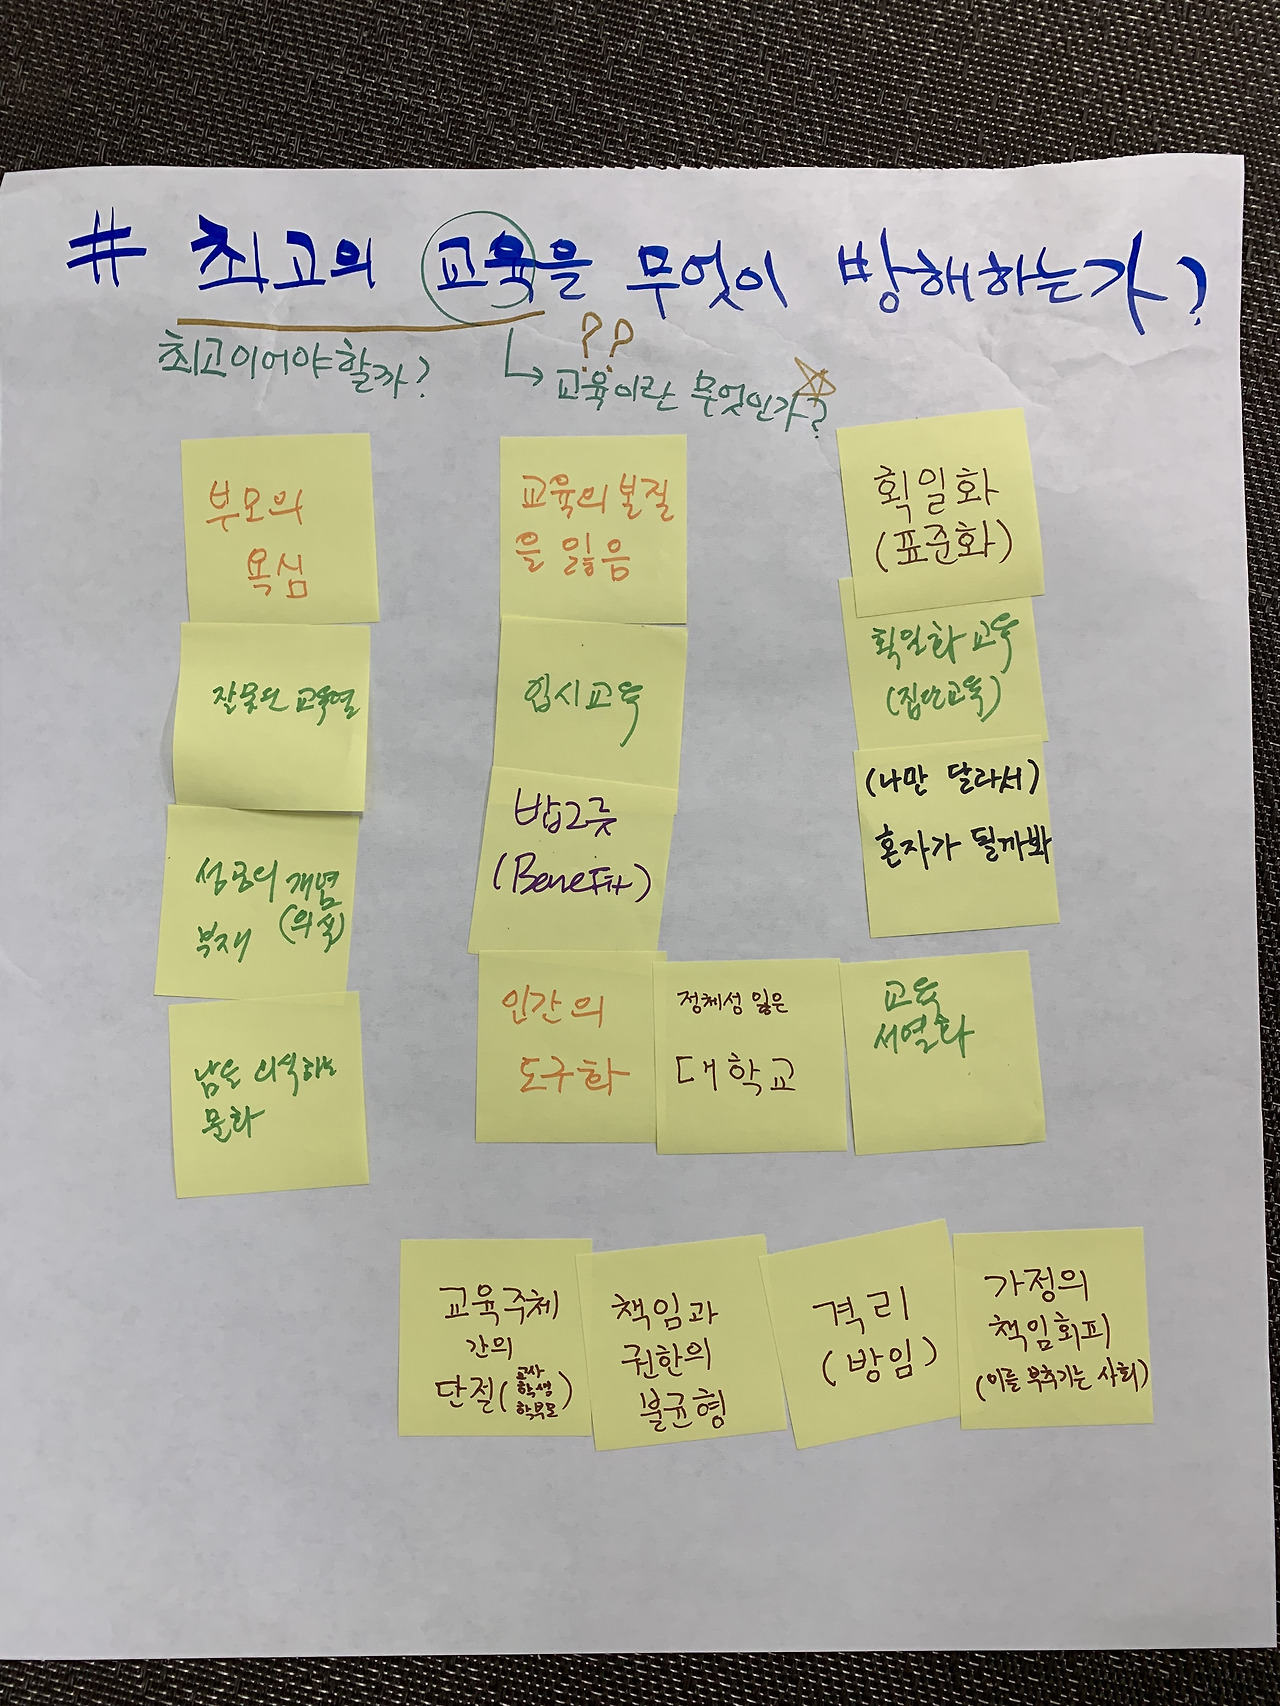 # 최고의 교육을 무엇이 방해하는가?
최고이어야 할까?
??
교육이란 무엇인가?
부모의
욕심
잘못된 교육열
성공의 개념
부재 (의식)
남을 의식하는
문화
교육의 본질
을 잃음
입시교육
밥그릇
(Benefit)
인간의
도구화
정체성 잃은
대학교
획일화
(표준화)
획일화 교육
(집단교육)
(나만 달라서)
혼자가 될까봐
교육
서열화
교육주체
간의
단절 (교사
학생
학부모)
책임과
권한의
불균형
격리
(방임)
가정의
책임회피
(이를 부추기는 사회)